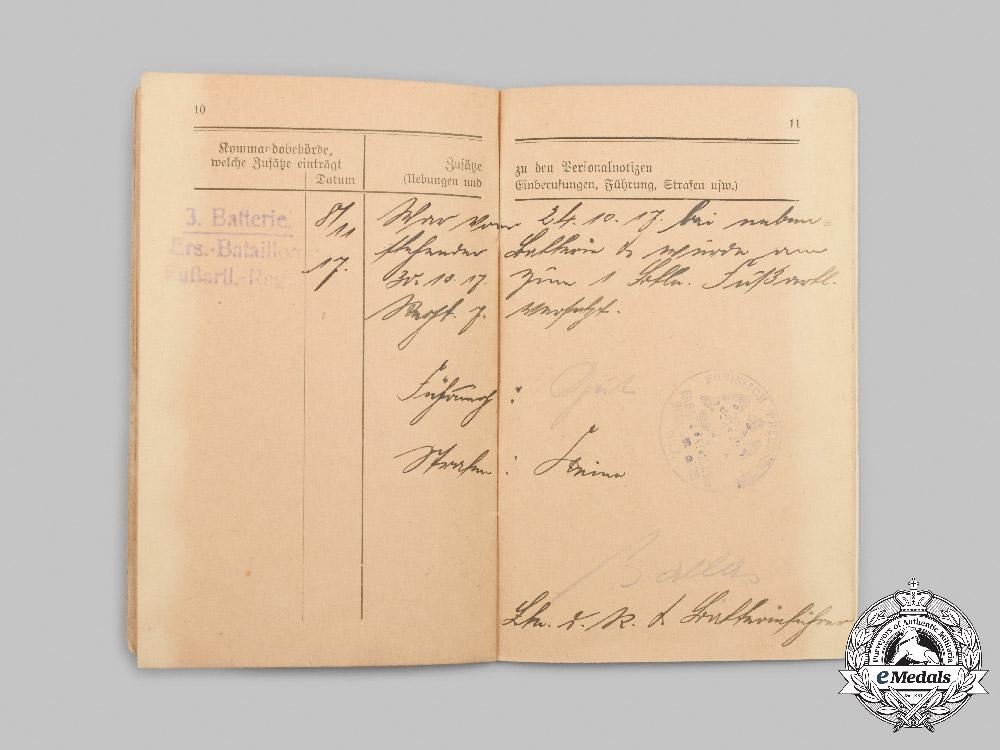 10
11
Kommandobehörde,
welche Zusätze einträgt
Datum
Zusätze zu den Personalnotizen
(Uebungen und Einberufungen, Führung, Strafen usw.)
3. Batterie.
Ers.-Bataillon
Fußartl.-Reg.
8/11
17.
War vom 24.10.17. bei neben=
stehender Batterie & wurde am
30.10.17. zum 1 Btln. Fußartl.
Regt. 7. versetzt.
Führung: Gut
Strafen: Keine
KÖNIGLICH PREUSS.
Ltn. d. R. & Batterieführer
Purveyors of Authentic Militaria
eMedals